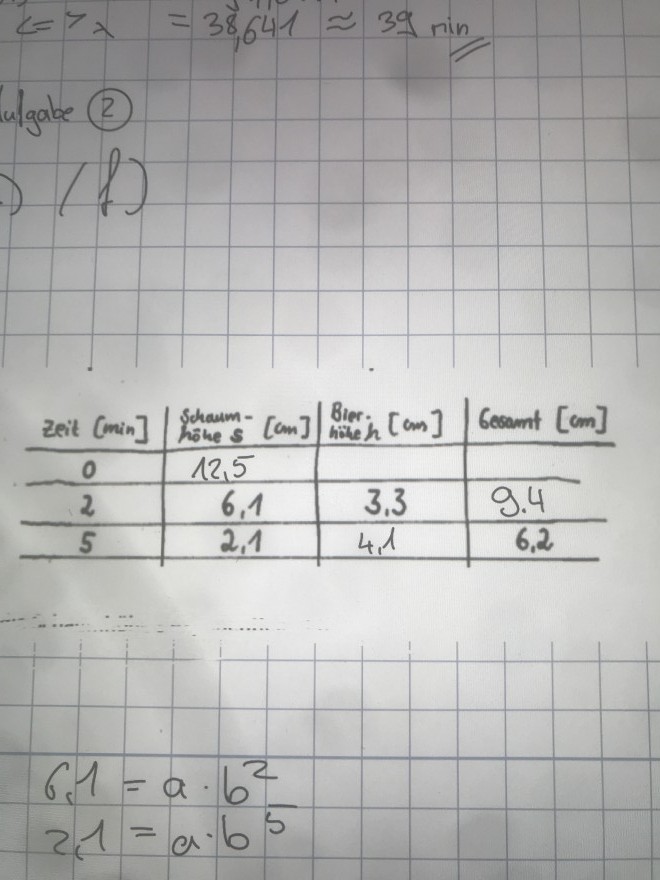 <=> λ = 38,641 ≈ 39 min
Aufgabe 2
) / f)
Zeit [min] Schaum-höhe s [cm] Bier-höhe h [cm] Gesamt [cm]
0 12,5
2 6,1 3,3 9.4
5 2,1 4,1 6,2
6,1 = a · b²
2,1 = a · b⁵